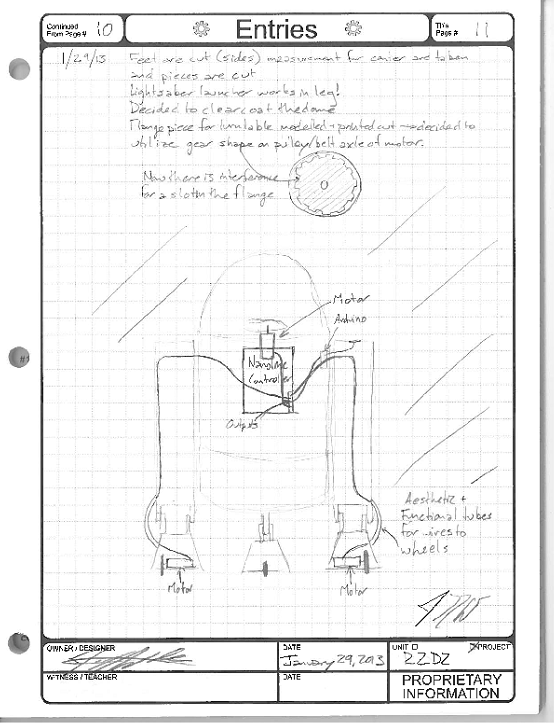 Continued
From Page # 10
Entries
This
Page # 11
1/29/13 Feet are cut (sides) measurement for center are taken
and pieces are cut
Lightsaber launcher works in leg!
Decided to clearcoat the dome
Flange piece for turntable modelled + printed cut → decided to
utilize gear shape on pulley/belt axle of motor.
Now there is interference
for a slot in the flange
Motor
Arduino
Nanoline
Controller
Outputs
Aesthetic +
Functional tubes
for wires to
wheels
Motor
Motor
OWNER / DESIGNER
DATE
January 29, 2013
UNIT ID
PROJECT
2ZDZ
WITNESS / TEACHER
DATE
PROPRIETARY
INFORMATION